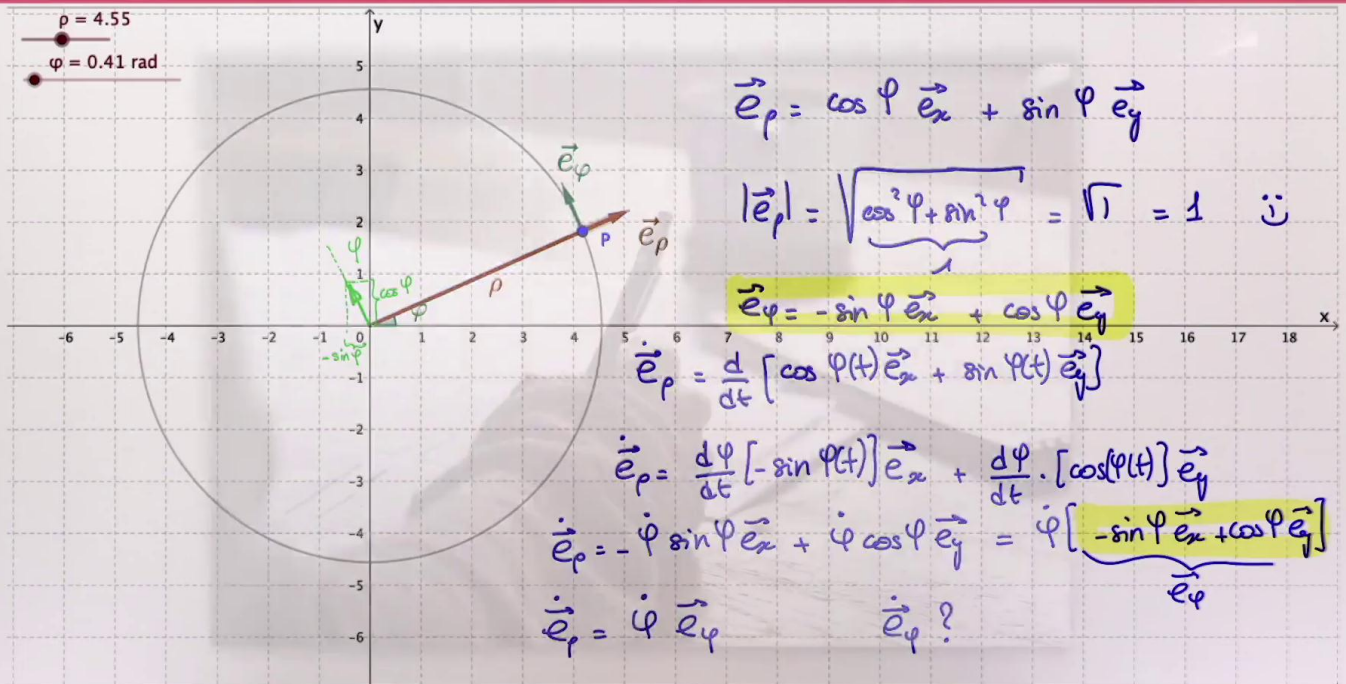 ρ = 4.55
φ = 0.41 rad
y
5
4
3
2
1
-1
-2
-3
-4
-5
-6
-6 -5 -4 -3 -2 -1 0 1 2 3 4 5 6 7 8 9 10 11 12 13 14 15 16 17 18
x
e⃗φ
e⃗ρ
P
ρ
φ
φ
cosφ
-sinφ
e⃗ρ = cos φ e⃗x + sin φ e⃗y
|e⃗ρ| = √(cos²φ + sin²φ) = √1 = 1 ü
1
e⃗φ = -sin φ e⃗x + cos φ e⃗y
ė⃗ρ = d/dt [cos φ(t) e⃗x + sin φ(t) e⃗y]
ė⃗ρ = dφ/dt [-sin φ(t)] e⃗x + dφ/dt · [cos(φ(t)] e⃗y
ė⃗ρ = - φ̇ sin φ e⃗x + φ̇ cos φ e⃗y = φ̇ [-sin φ e⃗x + cos φ e⃗y]
e⃗φ
ė⃗ρ = φ̇ e⃗φ ė⃗φ ?